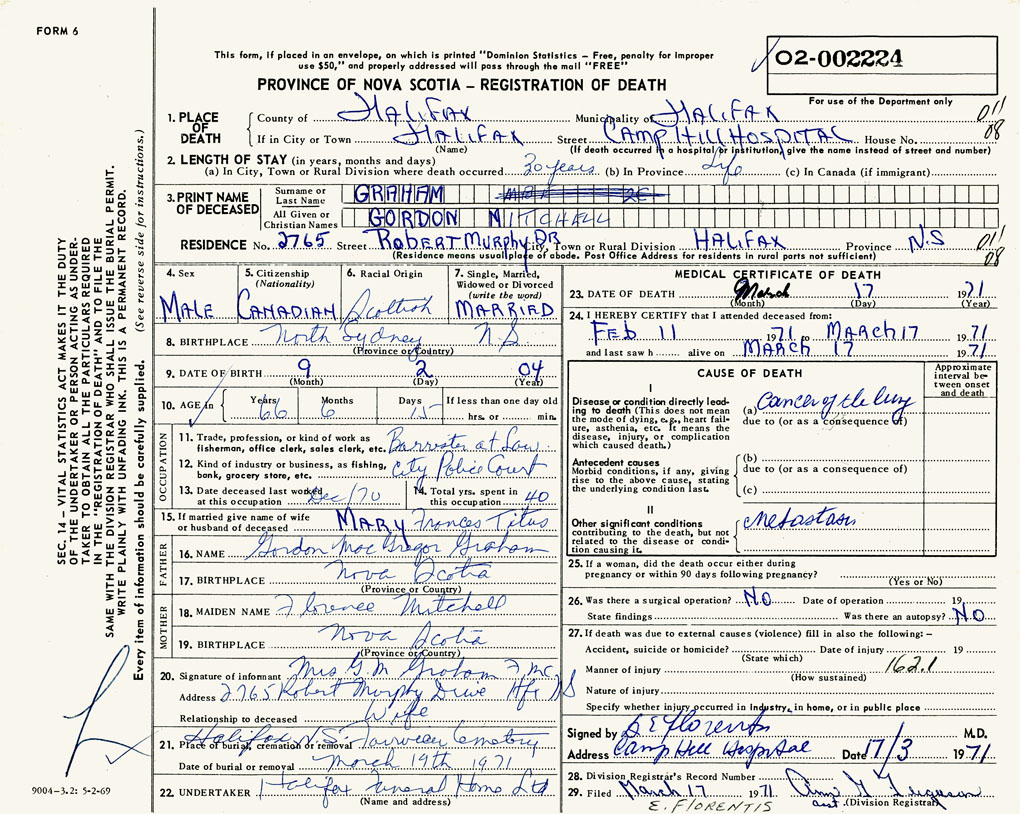 FORM 6
This form, if placed in an envelope, on which is printed "Dominion Statistics – Free, penalty for improper
use $50," and properly addressed will pass through the mail "FREE"
PROVINCE OF NOVA SCOTIA – REGISTRATION OF DEATH
02-002224
For use of the Department only
1. PLACE OF DEATH
County of HALIFAX Municipality of HALIFAX 011
If in City or Town HALIFAX Street CAMP HILL HOSPITAL House No. 08
(Name) (If death occurred in a hospital or institution, give the name instead of street and number)
2. LENGTH OF STAY (in years, months and days)
(a) In City, Town or Rural Division where death occurred 30 years (b) In Province Life (c) In Canada (if immigrant)
3. PRINT NAME OF DECEASED
Surname or Last Name GRAHAM
All Given or Christian Names GORDON MITCHELL
RESIDENCE No. 2765 Street ROBERT MURPHY DR City, Town or Rural Division HALIFAX Province N.S 011
(Residence means usual place of abode. Post Office Address for residents in rural parts not sufficient) 08
4. Sex MALE
5. Citizenship (Nationality) CANADIAN
6. Racial Origin Scottish
7. Single, Married, Widowed or Divorced (write the word) MARRIED
8. BIRTHPLACE North Sydney N.S.
(Province or Country)
9. DATE OF BIRTH 9 2 04
(Month) (Day) (Year)
10. AGE in Years 66 Months 6 Days 15 If less than one day old
hrs. or min.
OCCUPATION
11. Trade, profession, or kind of work as
fisherman, office clerk, sales clerk, etc. Barrister at Law
12. Kind of industry or business, as fishing,
bank, grocery store, etc. City Police Court
13. Date deceased last worked
at this occupation Dec/70
14. Total yrs. spent in
this occupation 40
15. If married give name of wife
or husband of deceased MARY Frances Titus
FATHER
16. NAME Gordon MacGregor Graham
17. BIRTHPLACE Nova Scotia
(Province or Country)
MOTHER
18. MAIDEN NAME Florence Mitchell
19. BIRTHPLACE Nova Scotia
(Province or Country)
20. Signature of informant Mrs G.M Graham F.Mc
Address 2765 Robert Murphy Drive Hfx NS
Relationship to deceased Wife
21. Place of burial, cremation or removal Halifax N.S. Fairview Cemetery
Date of burial or removal March 19th 1971
22. UNDERTAKER Halifax Funeral Home Ltd
(Name and address)
MEDICAL CERTIFICATE OF DEATH
23. DATE OF DEATH March 17 1971
(Month) (Day) (Year)
24. I HEREBY CERTIFY that I attended deceased from:
FEB 11 1971 to MARCH 17 1971
and last saw h alive on MARCH 17 1971
CAUSE OF DEATH
Approximate interval between onset and death
I
Disease or condition directly leading to death (This does not mean the mode of dying, e.g., heart failure, asthenia, etc. It means the disease, injury, or complication which caused death.)
(a) Cancer of the lung
due to (or as a consequence of)
Antecedent causes
Morbid conditions, if any, giving rise to the above cause, stating the underlying condition last.
(b)
due to (or as a consequence of)
(c)
II
Other significant conditions contributing to the death, but not related to the disease or condition causing it.
Metastasis
25. If a woman, did the death occur either during
pregnancy or within 90 days following pregnancy?
(Yes or No)
26. Was there a surgical operation? NO Date of operation 19
State findings Was there an autopsy? NO
27. If death was due to external causes (violence) fill in also the following: –
Accident, suicide or homicide? Date of injury 19
(State which)
Manner of injury 162.1
(How sustained)
Nature of injury
Specify whether injury occurred in industry, in home, or in public place
Signed by E Florentis M.D.
Address Camp Hill Hospital Date 17/3 1971
28. Division Registrar's Record Number
29. Filed March 17 1971 Ann G Ferguson
asst. (Division Registrar)
E. FLORENTIS
SEC. 14 – VITAL STATISTICS ACT MAKES IT THE DUTY
OF THE UNDERTAKER OR PERSON ACTING AS UNDER-
TAKER TO OBTAIN ALL THE PARTICULARS REQUIRED
IN THE "REGISTRATION OF DEATH" AND FILE THE
SAME WITH THE DIVISION REGISTRAR WHO SHALL ISSUE THE BURIAL PERMIT.
WRITE PLAINLY WITH UNFADING INK. THIS IS A PERMANENT RECORD.
Every item of information should be carefully supplied. (See reverse side for instructions.)
9004–3.2: 5-2-69